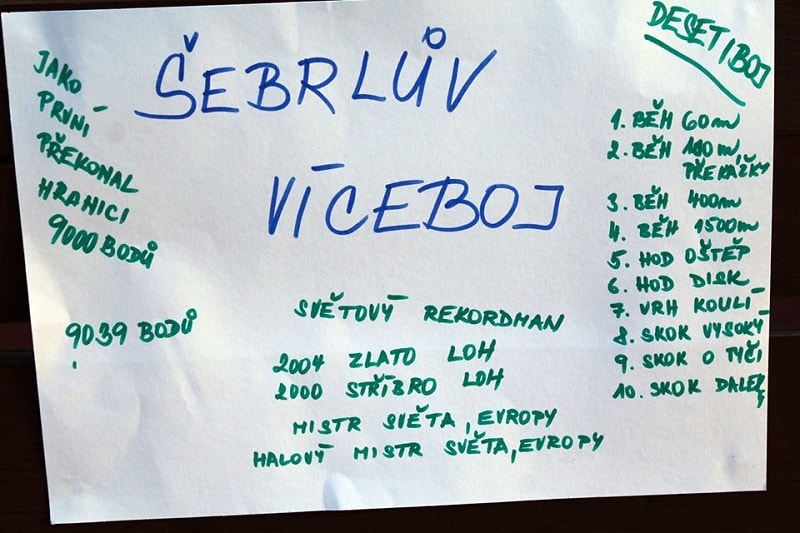 ŠEBRLŮV
VÍCEBOJ
JAKO
PRVNÍ
PŘEKONAL
HRANICI
9000 BODŮ
9039 BODŮ
SVĚTOVÝ REKORDMAN
2004 ZLATO LOH
2000 STŘÍBRO LOH
MISTR SVĚTA, EVROPY
HALOVÝ MISTR SVĚTA, EVROPY
DESETIBOJ
1. BĚH 60m
2. BĚH 110m,
PŘEKÁŽKY
3. BĚH 400m
4. BĚH 1500m
5. HOD OŠTĚP
6. HOD DISK
7. VRH KOULÍ
8. SKOK VYSOKÝ
9. SKOK O TYČI
10. SKOK DALEK